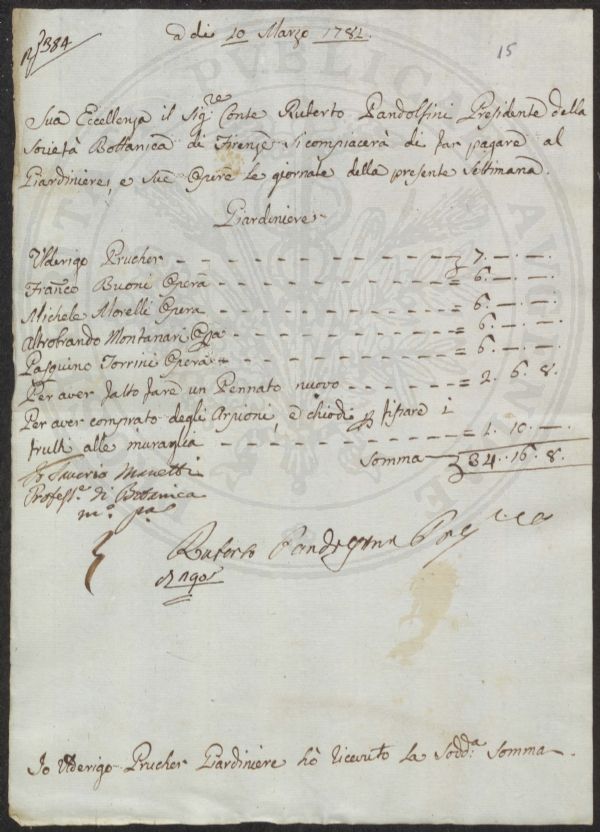 384
a di 10 Marzo 1781.
15
Sua Eccellenza il Sig.re Conte Ruberto Pandolfini Presidente della
Società Bottanica di Firenze si compiacerà di far pagare al
Giardiniere, e sue Opere le giornate della presente Settimana.
Giardiniere
Ulderigo Prucher - - - - - - - 7. —. —
Franco Buoni Opera - - - - - - = 6. —. —
Michele Morelli Opera - - - - - - = 6. —. —
Altrobrando Montanari Opa - - - - - = 6. —. —
Pasquino Torrini Opera - - - - - - = 6. —. —
Per aver fatto fare un Pennato nuovo - - - - = 2. 6. 8.
Per aver comprato degli Arpioni, e chiodi p fissare i
frutti alle muraglia - - - - - - - = 1. 10. —
Somma 34. 16. 8.
Io Saverio Manetti
Profess.e di Botanica
m.o pa
Ruberto Pandolfini
Io Ulderigo Prucher Giardiniere hò ricevuto la Sodd.a Somma